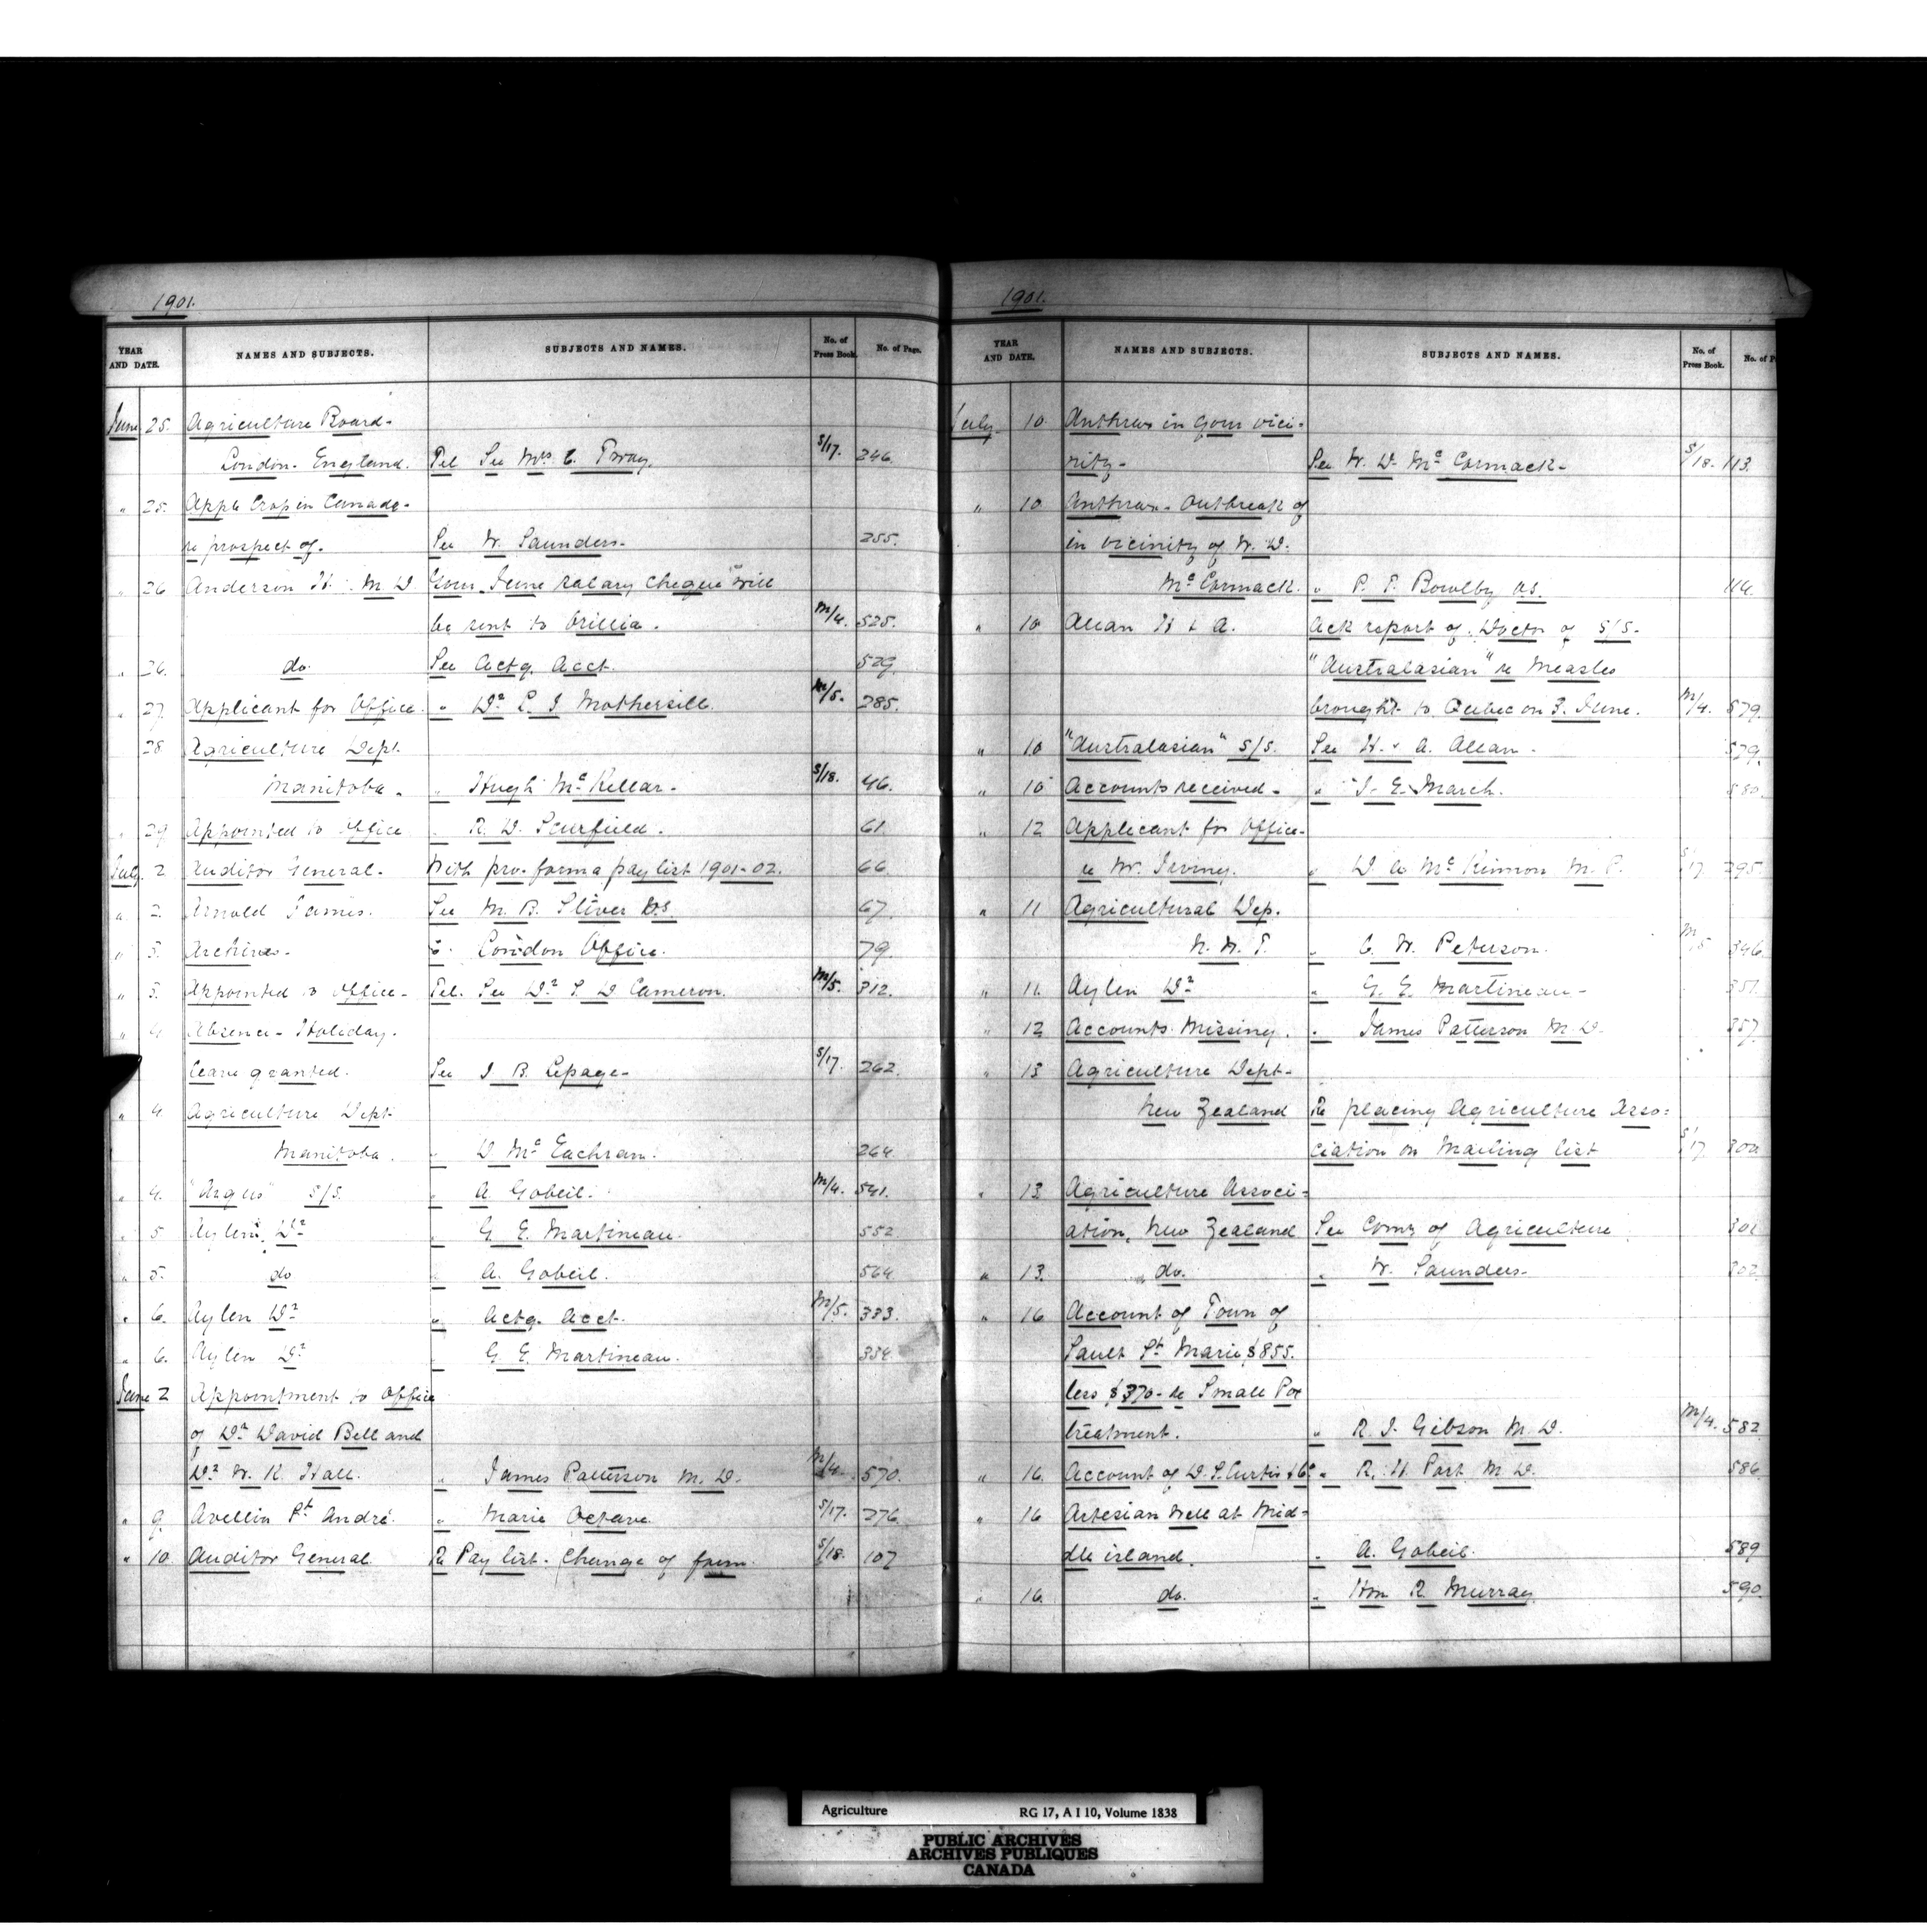 1901.
YEAR AND DATE. NAMES AND SUBJECTS. SUBJECTS AND NAMES. No. of Press Book. No. of Page.
June 25. Agriculture Board-
London. England. Tel See Mrs C. Bray. S/17. 246.
" 25. Apple Crop in Canada-
re prospect of. See W. Saunders. 255.
" 26 Anderson H. M. D Your June salary cheque will
be sent to Orillia. M/4. 525.
" 26. do. See Actg. Acct. 529.
" 27. Applicant for Office. " Dr L J Mothersill. M/5. 285.
28 Agriculture Dept.
Manitoba. " Hugh Mc Kellar. S/18. 46.
" 29 Appointed to Office " R. D. Scurfield. 61.
July 2 Auditor General. With pro-forma pay list 1901-02. 66.
" 2. Arnold James. See M. B. Sliver 67.
" 3. Archives. " London Office. 79.
" 3. Appointed to Office- Tel. See Dr S. D Cameron. M/5. 312.
" 4 Absence- Holiday.
leave granted. See J. B. Lepage- S/17. 262.
" 4 Agriculture Dept
Manitoba. " D Mc Eachran. 264.
" 4. "Argus" S/S. " A. Gobeil. M/4. 541.
" 5 Aylen. Dr " G E. Martineau. 552
" 5. do " A. Gobeil. 564.
" 6. Aylen Dr " Actg. Acct. M/5. 333.
" 6. Aylen Dr " G E. Martineau. 334.
June 2 Appointment to Office
of Dr David Bell and
Dr W. K. Hall. " James Patterson M. D. M/4. 570.
" 9. Avellin St André. " Marie Octave. S/17. 276.
" 10. Auditor General. Re Pay list. Change of form. S/18. 107
1901.
YEAR AND DATE. NAMES AND SUBJECTS. SUBJECTS AND NAMES. No. of Press Book. No. of P
July 10. Anthrax in your vici-
nity- See W. D. Mc Cormack- S/18. 113.
" 10 Anthrax- Outbreak of
in vicinity of W. D.
Mc Cormack. " P. P. Bowlby V.S. 114.
" 10 Allan H & A. Ack report of Doctor of S/S.
"Australasian" re Measles
brought to Quebec on 3. June. M/4. 579.
" 10 "Australasian" S/S. See H. & A. Allan. 579.
" 10 Accounts received. " J. E. March. 580.
" 12 Applicant for Office-
re W. Irving. " D A Mc Kinnon M. P. S/17. 295.
" 11 Agricultural Dep.
N. W. T. " C. W. Peterson. M/5 346.
" 11. Aylen Dr " G. E. Martineau- 351.
" 12 Accounts Missing. " James Patterson M. D. 357.
" 13 Agriculture Dept-
New Zealand Re placing Agriculture Asso-
ciation on Mailing list S/17. 300.
" 13 Agriculture Associ-
ation, New Zealand See Comr of Agriculture. 301
" 13. " do. " W. Saunders. 302.
" 16 Account of Town of
Sault St Marie $855.
less $370- re Small Pox
treatment. " R. J. Gibson M. D. M/4. 582
" 16. Account of D. S. Curtis & Co " R. H. Port M D. 586
" 16 Artesian Well at Mid-
dle island. " A. Gobeil. 589
" 16. do. " Hon R. Murray 590.
Agriculture RG 17, A I 10, Volume 1838
PUBLIC ARCHIVES
ARCHIVES PUBLIQUES
CANADA